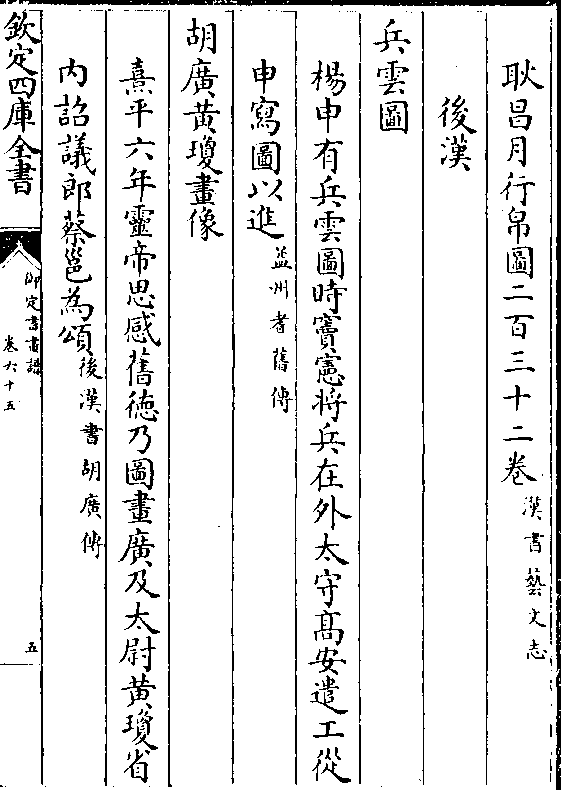 耿昌月行帛圖二百三十二卷漢書藝文志
後漢
兵雲圖
楊申有兵雲圖時竇憲將兵在外太守髙安遣工從
申寫圖以進益州耆舊傳
胡廣黄瓊畫像
熹平六年靈帝思感舊徳乃圖畫廣及太尉黄瓊省
内詔議郎蔡邕為頌後漢書胡廣傳
欽定四庫全書
御定書畫譜
卷六十五
五